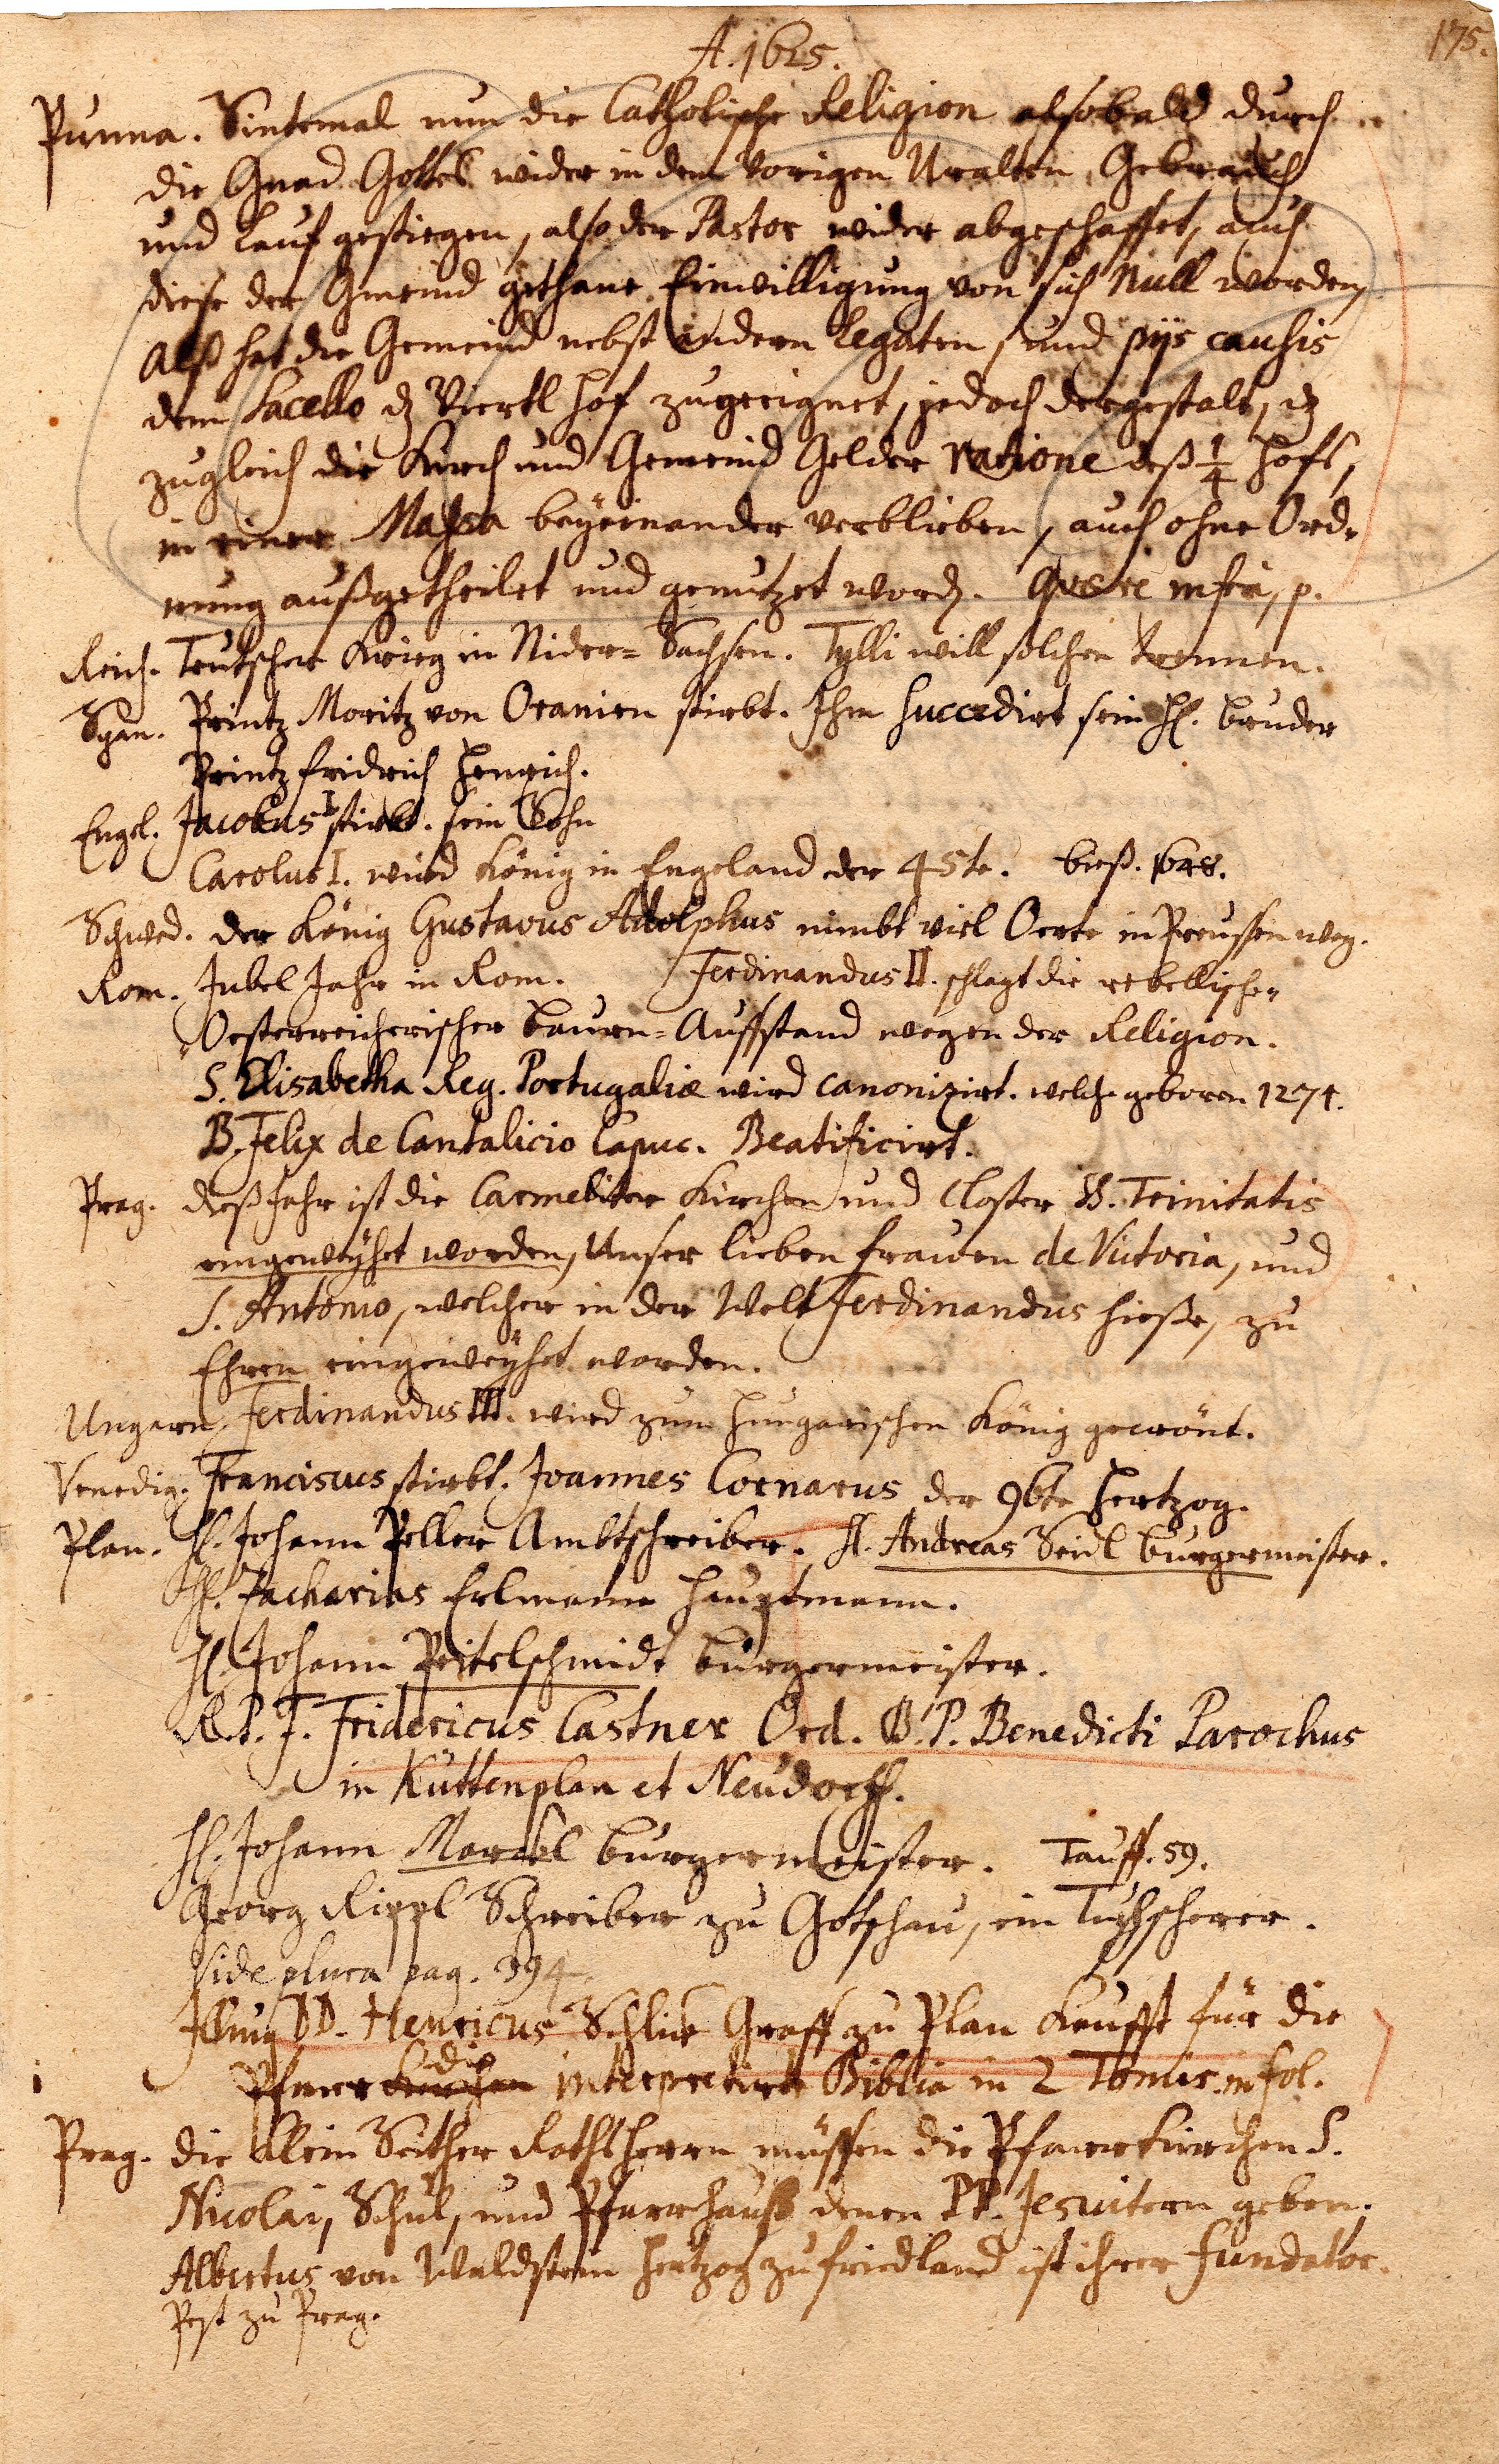 175.
A. 1625.
Punna. Sintemal nun die Catholische Religion alsobald durch
die Gnad Gottes wider in dem Vorigen Uralten Gebrauch
und Lauf gestiegen, also der Pastor wider abgeschaffet, auch
diese der Gmeind gethane Einwilligung von sich Null worden,
Alß hat die Gemeind nebst andern Legaten, und pijs causis
dem Sacello dz Viertl Hof zugeeignet, jedoch dergestalt, dz
zugleich die Kirch und Gemeind Gelder ratione deß 1/4 Hofs,
in einer Massa beyeinander verblieben, auch ohne Ord-
nung außgetheilet und genutzet word. Quaere infra, p.
Reich. Teutscher Krieg in Nider=Sachsen. Tylli will solchen trennen.
Span. Printz Moritz von Oranien stirbt. Ihm succedirt sein H. Bruder
Printz Fridrich Henrich.
Engel. Jacobus I stirbt. sein Sohn
Carolus I. wird König in Engeland der 45te. bieß. 1648.
Schwed. der König Gustavus Adolphus nimbt viel Oerte in Preussen weg.
Rom. Jubel Jahr in Rom. Ferdinandus II. schlagt die rebellische
Oesterreicherischer Baurn=Auffstand wegen der Religion.
S. Elisabetha Reg. Portugaliæ wird canonizirt. welche geboren 1271.
B. Felix de Cantalicio Capuc. Beatificirt.
Prag. dieß Jahr ist die Carmeliter Kirchen und Closter SS. Trinitatis
eingeweyhet worden, Unser lieben Frauen de Victoria, und
S. Antonio, welcher in der Welt Ferdinandus hieße, zu
Ehren eingeweyhet worden.
Ungarn. Ferdinandus III. wird zum Hungarischen König gecrönt.
Venedig. Franciscus stirbt. Joannes Cornarus der 96te Hertzog.
Plan. H. Johann Peller Ambtschreiber. H. Andreas Seidl Burgermeister.
H. Zacharias Erlmann Hauptmann.
H. Johann Peitelschmidt Burgermeister.
R. P. F. Fridericus Castner Ord. B. P. Benedicti Parochus
in Kuttenplan et Neudorff.
H. Johann Marckl Burgermeister. Tauff. 59.
Georg Rippl Schreiber zu Gotschau, ein Tuchscherer.
Vide plura pag. 394.
Illmus DD. Henricus Schlick Graff zu Plan Kaufft für die
Pfarr Kirchen die interpretirte Biblia in 2 Tomis in fol.
Prag. die Klein Seither Rathsherrn müssen die Pfarrkirchen S.
Nicolai, Schul, und Pfarrhauß denen PP. Jesuitern geben.
Albertus von Waldstein Hertzog zu Friedland ist ihrer Fundator.
Pest zu Prag.